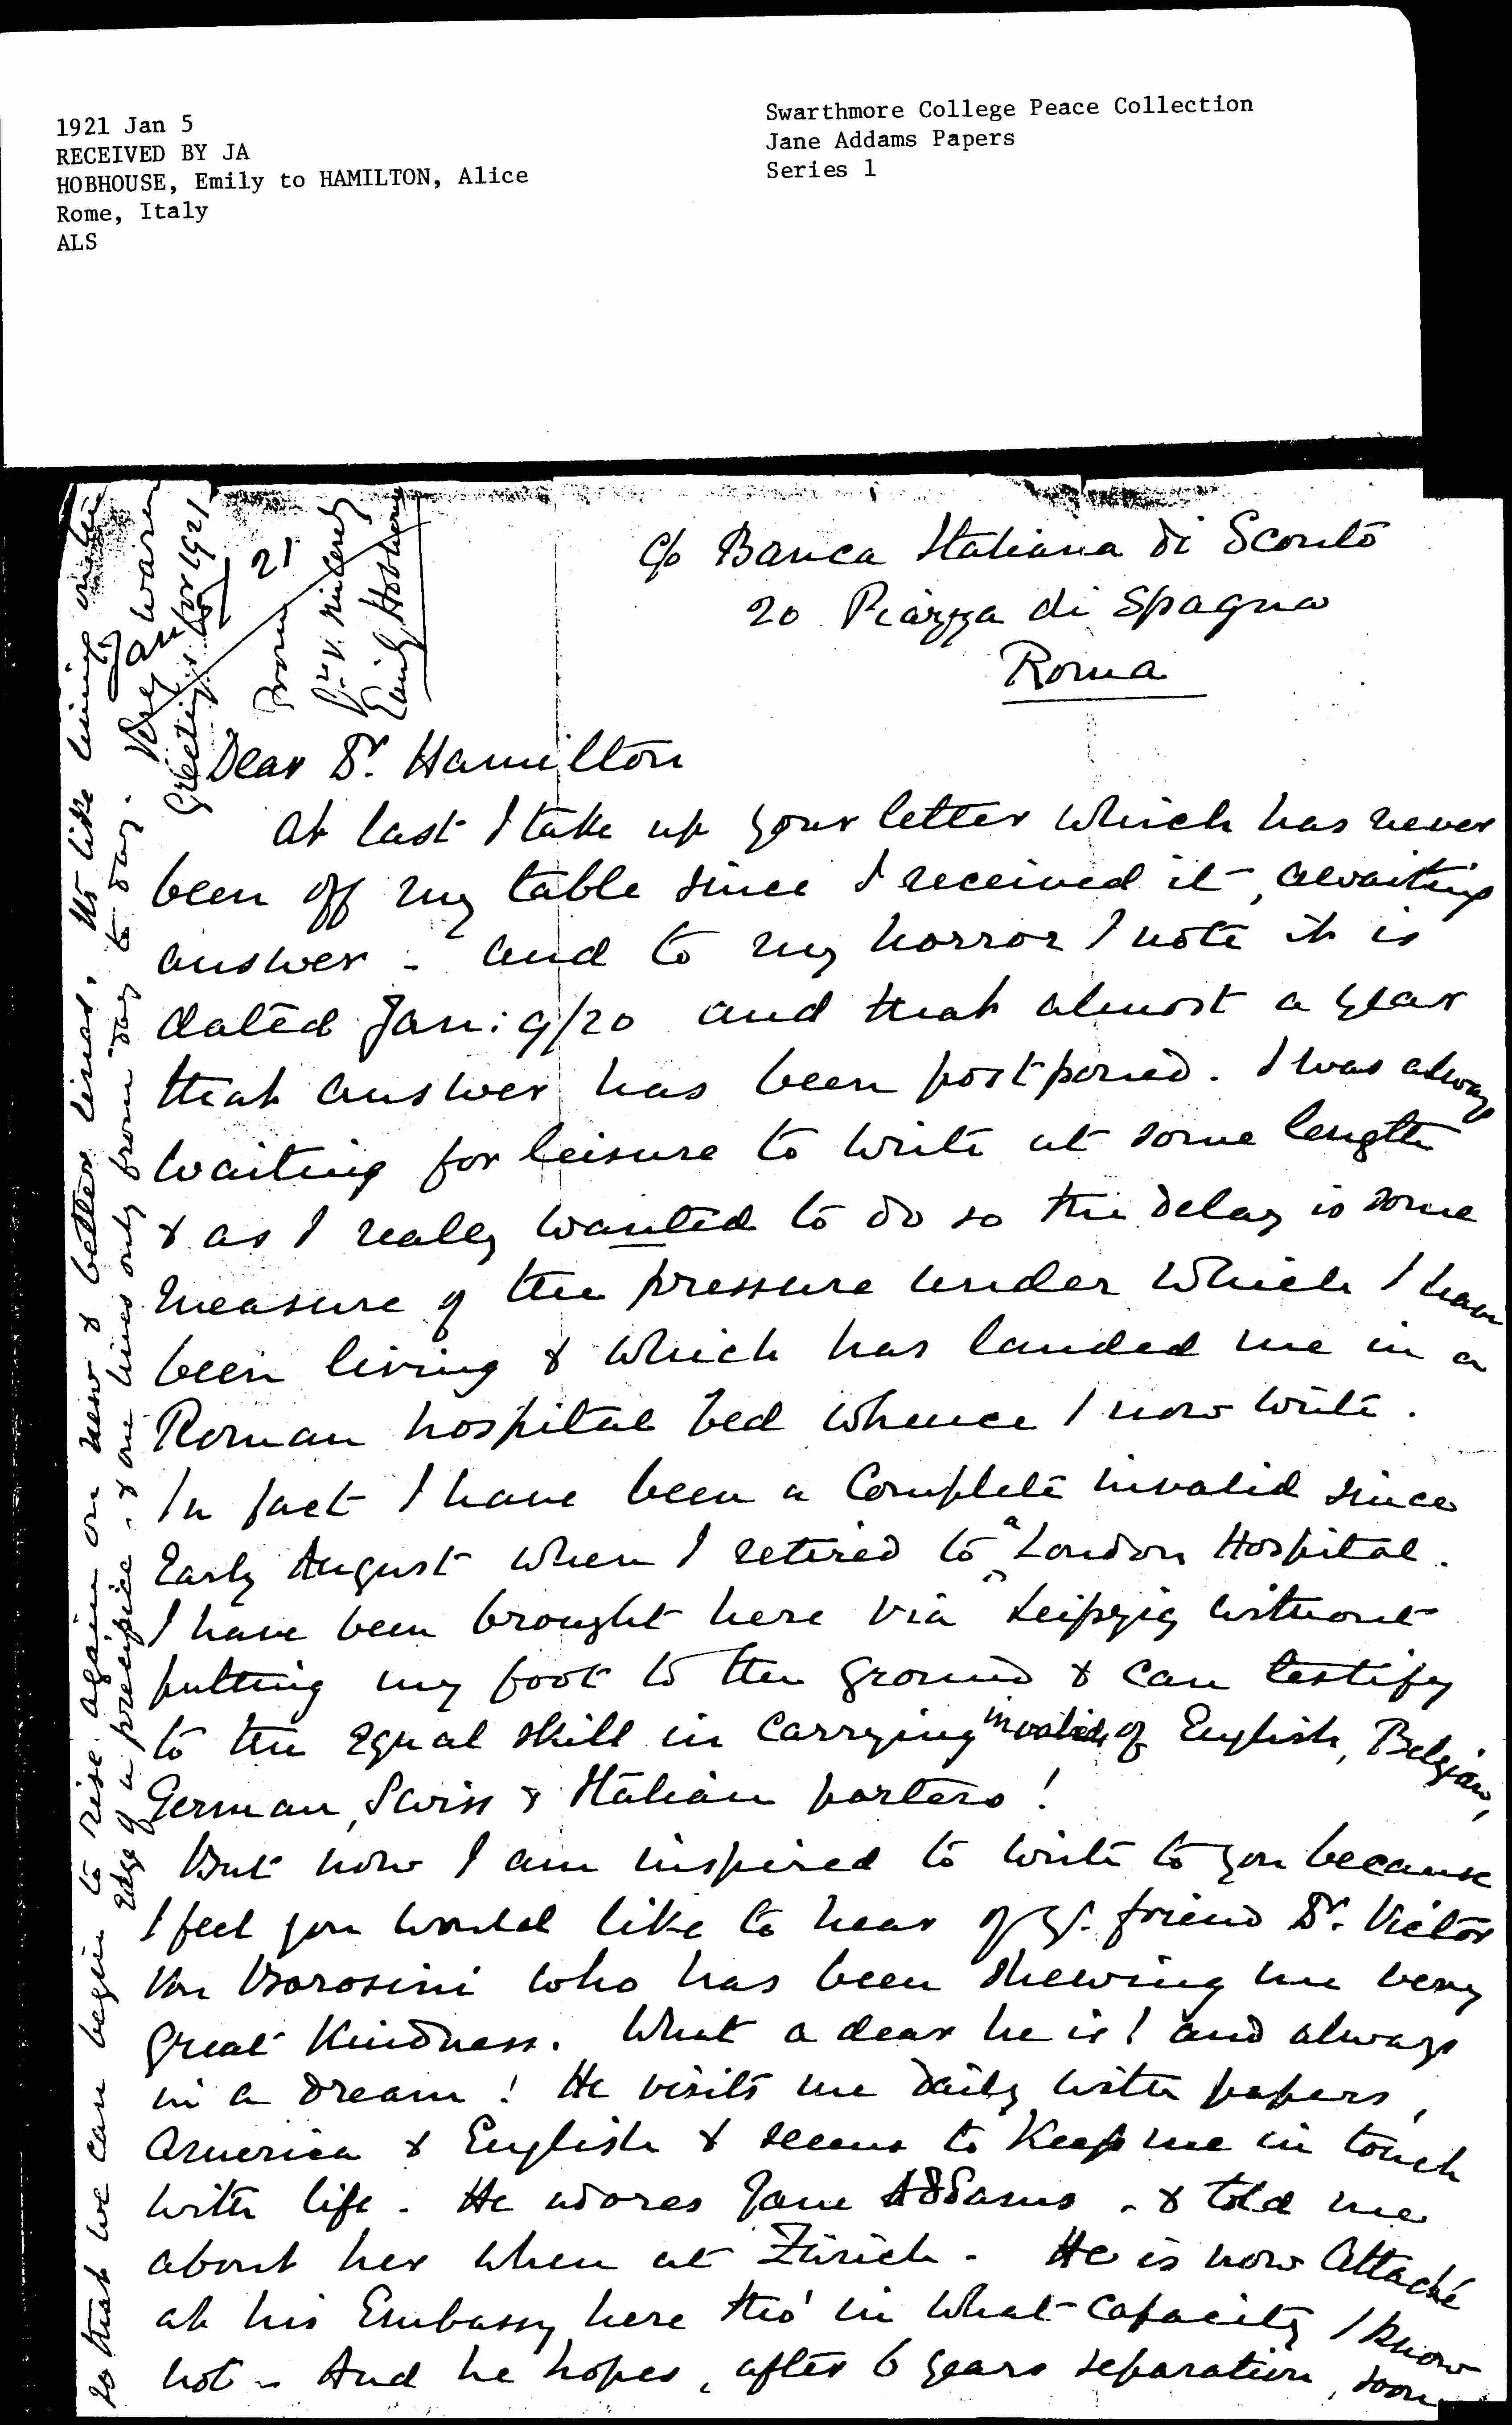 1921 Jan 5
RECEIVED BY JA
HOBHOUSE, Emily to HAMILTON, Alice
Rome, Italy
ALS
Swarthmore College Peace Collection
Jane Addams Papers
Series 1
c/o Banca Italiana di Sconto
20 Piazza di Spagna
Roma
Jan 5/21
Dear Dr. Hamilton
At last I take up your letter which has never
been off my table since I received it, awaiting
answer - and to my horror I note it is
dated Jan: 9/20 and that almost a year
that answer has been postponed. I was always
waiting for leisure to write at some length
& as I really wanted to do so the delay is some
measure of the pressure under which I have
been living & which has landed me in a
Roman hospital bed whence I now write.
In fact I have been a complete invalid since
Early August when I retired to a London Hospital.
I have been brought here via Leipzig without
putting my foot to the ground & can testify
to the equal skill in carrying invalids of English, Belgian,
German, Swiss & Italian porters!
But now I am inspired to write to you because
I feel you would like to hear of yr. friend Dr. Victor
von Borosini who has been shewing me very
great kindness. What a dear he is! and always
in a dream! He visits me daily with papers,
America & English & seems to keep me in touch
with life. He adores Jane Addams - & told me
about her when at Zürich - He is now Attaché
at his Embassy here tho' in what capacity I know
not - And he hopes, after 6 years separation, soon
so that we can begin to rise again on new & better lines. It's like living on the
edge of a precipice - & one lives only from day to day.
Very warm
Greetings for 1921
from
yrs v. sincerely
Emily Hobhouse